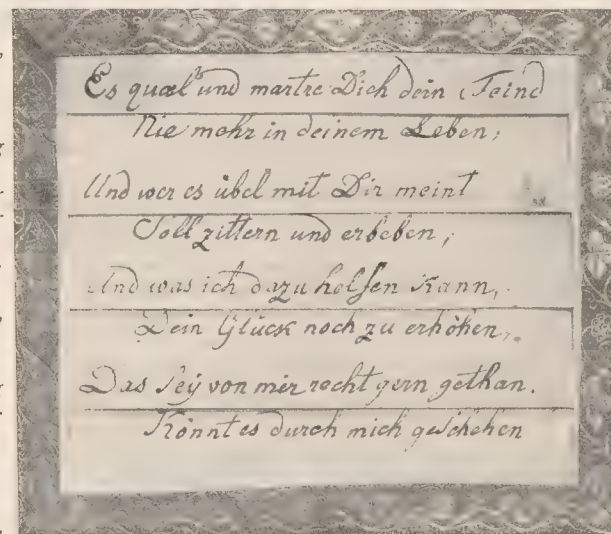 Es quæl' und martre Dich dein Feind
Nie mehr in deinem Leben;
Und wer es übel mit Dir meint
Soll zittern und erbeben;
Und was ich dazu helfen Kann,
Dein Glück noch zu erhöhen,
Das Seÿ von mir recht gern gethan.
Könnt es durch mich geschehen